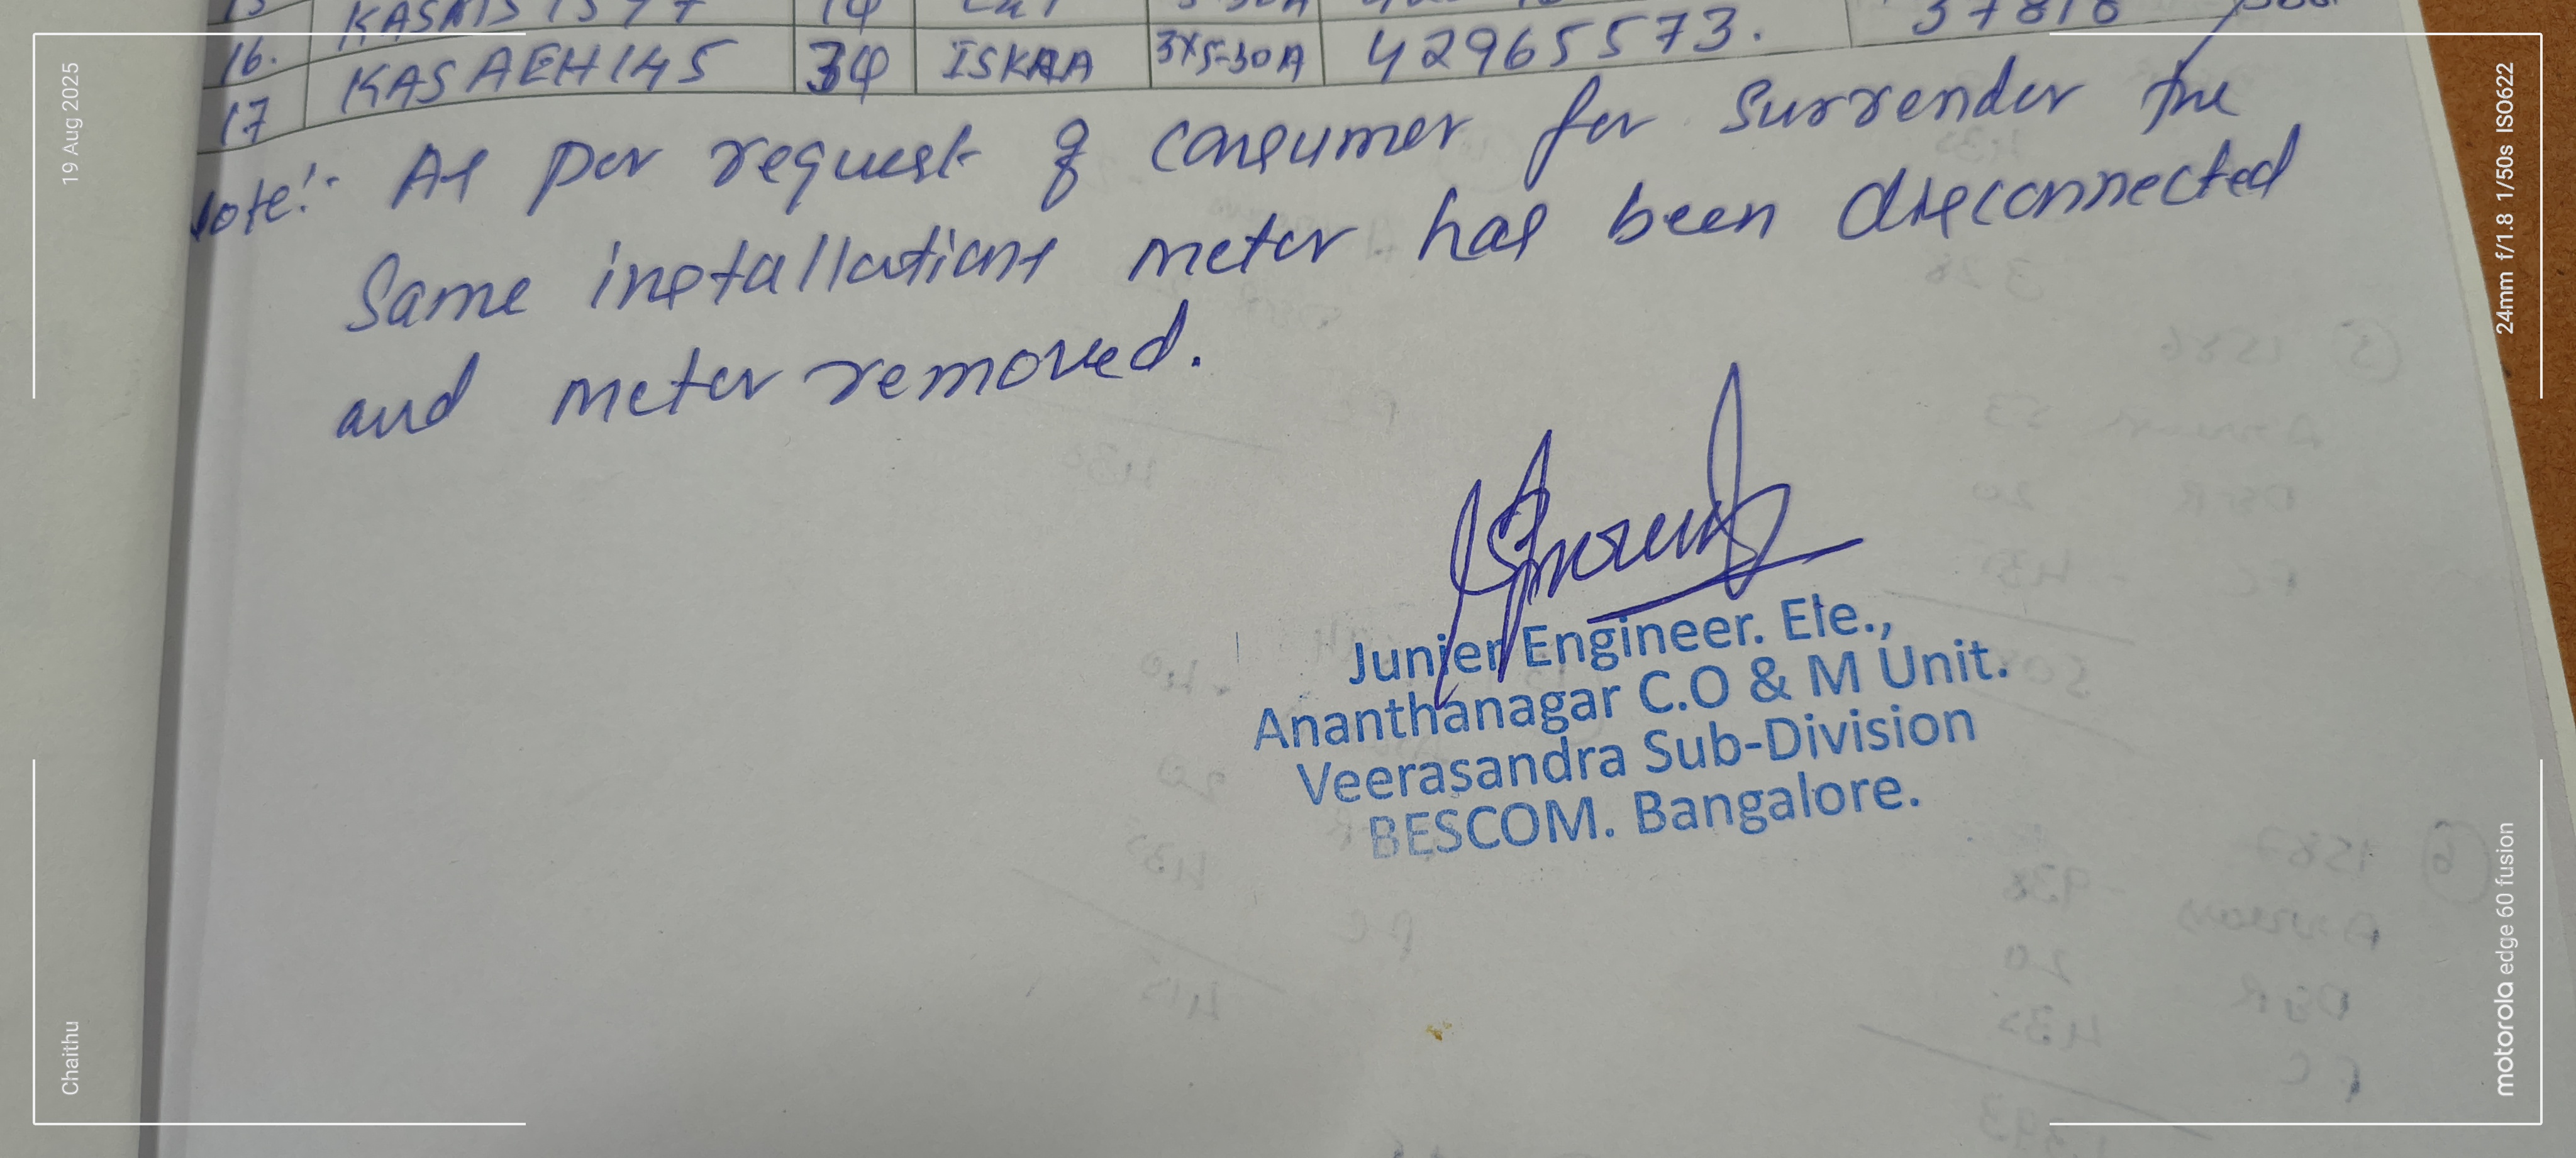 16. KASAEH145 3φ ISKRA 3X5-30A 42965573. 37818
17
Note:- As per request of consumer for surrender the
Same installations meter has been disconnected
and meter removed.
Junier Engineer. Ele.,
Ananthanagar C.O & M Unit.
Veerasandra Sub-Division
BESCOM. Bangalore.
19 Aug 2025
Chaithu
24mm f/1.8 1/50s ISO622
motorola edge 60 fusion